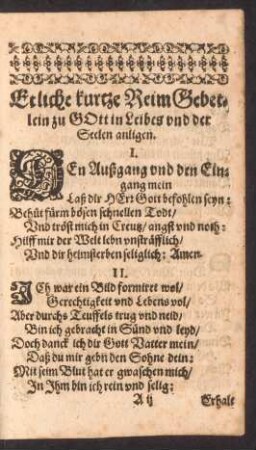 Etliche kurtze Reim Gebet-
lein zu GOtt in Leibes vnd der
Seelen anligen.
I.
DEn Außgang vnd den Ein-
gang mein
Laß dir HErr Gott befohlen seyn:
Behüt fürm bösen schnellen Todt/
Vnd tröst mich in Creutz/ angst vnd noth:
Hilff mir der Welt lebn vnsträfflich/
Vnd dir heimsterben seliglich: Amen.
II.
ICh war ein Bild formiret wol/
Gerechtigkeit vnd Lebens vol/
Aber durchs Teuffels trug vnd neid/
Bin ich gebracht in Sünd vnd leyd/
Doch danck ich dir Gott Vatter mein/
Daß du mir gebn den Sohne dein:
Mit seim Blut hat er gwaschen mich/
In Ihm bin ich rein vnd selig:
A ij Erhalt